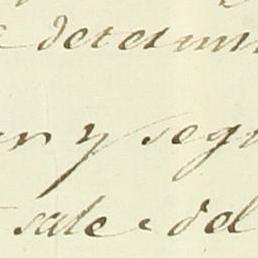 e determi
n y segu
sale del